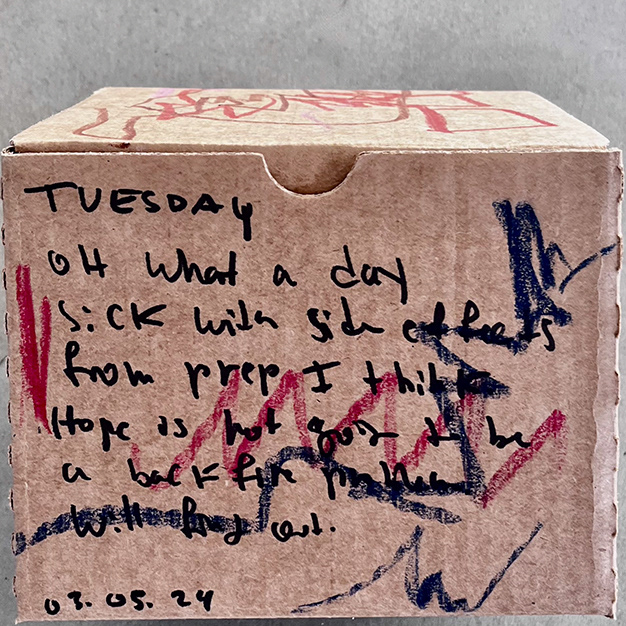 TUESDAY
OH What a day
SiCK with side effects
from prep I think
Hope is not going to be
a backfire problem
Will find out.
03.05.24